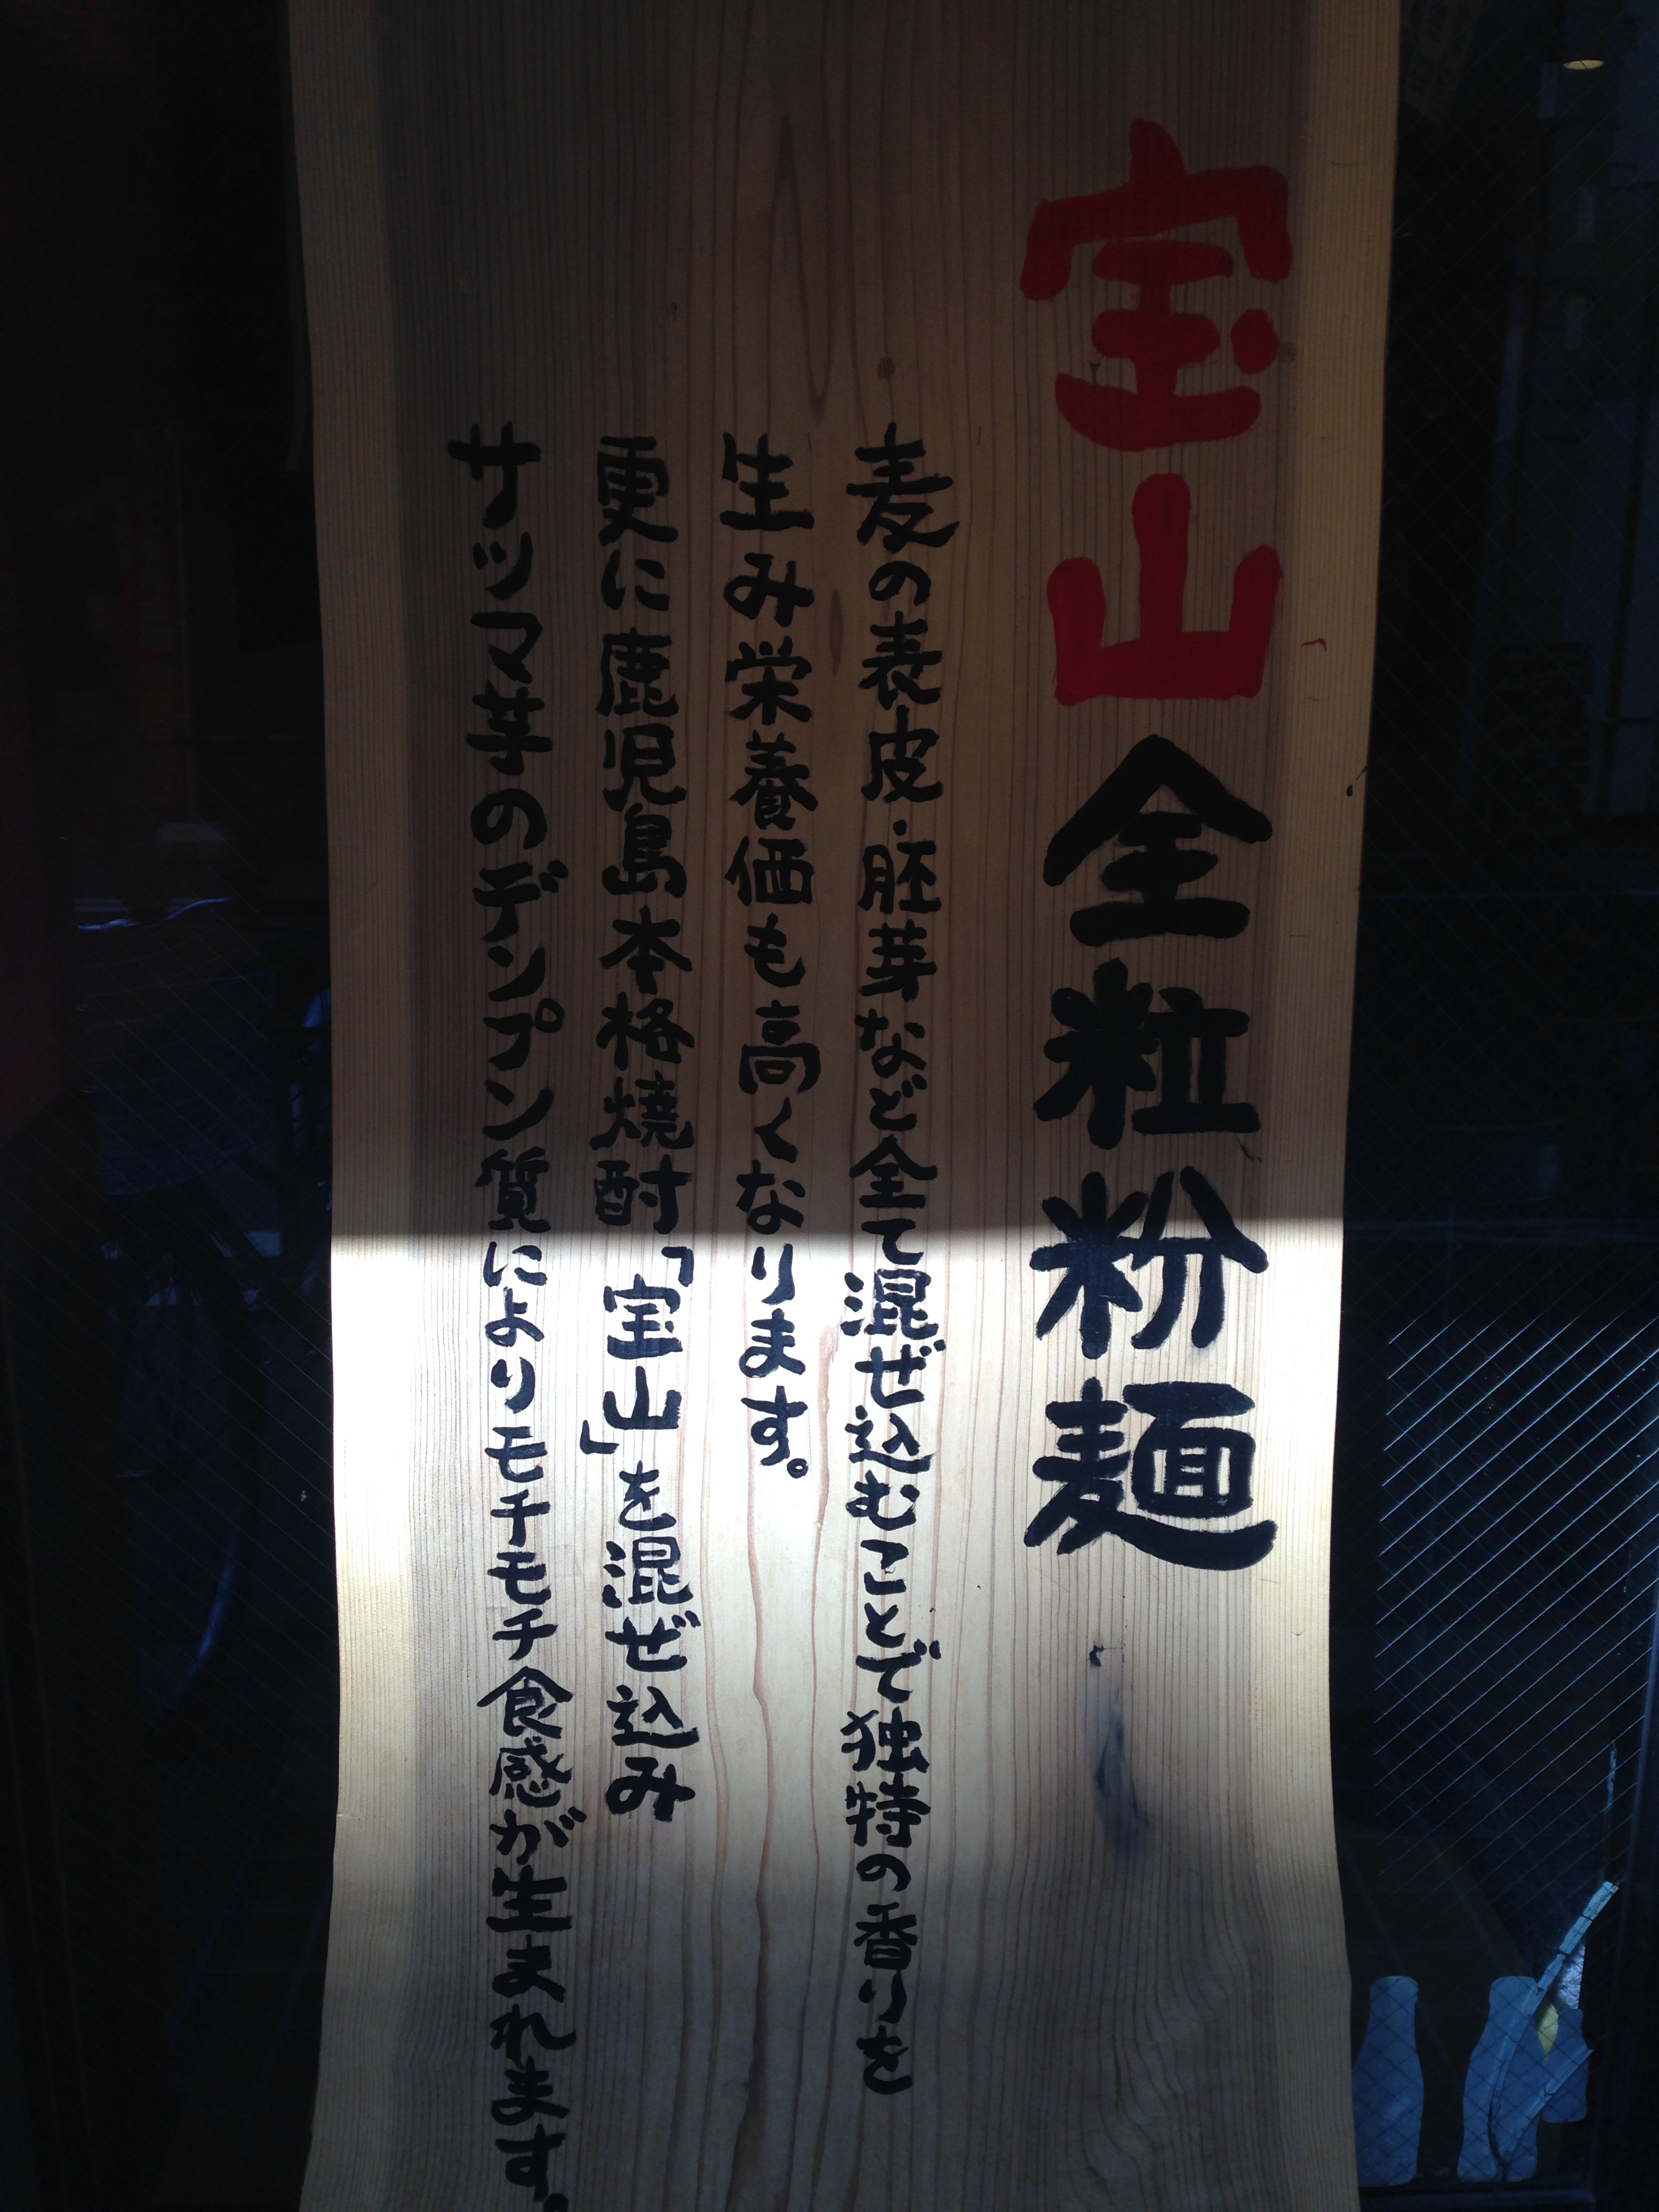 宝山全粒粉麺
麦の表皮・胚芽など全て混ぜ込むことで独特の香りを
生み栄養価も高くなります。
更に鹿児島本格焼酎「宝山」を混ぜ込み
サツマ芋のデンプン質によりモチモチ食感が生まれます。